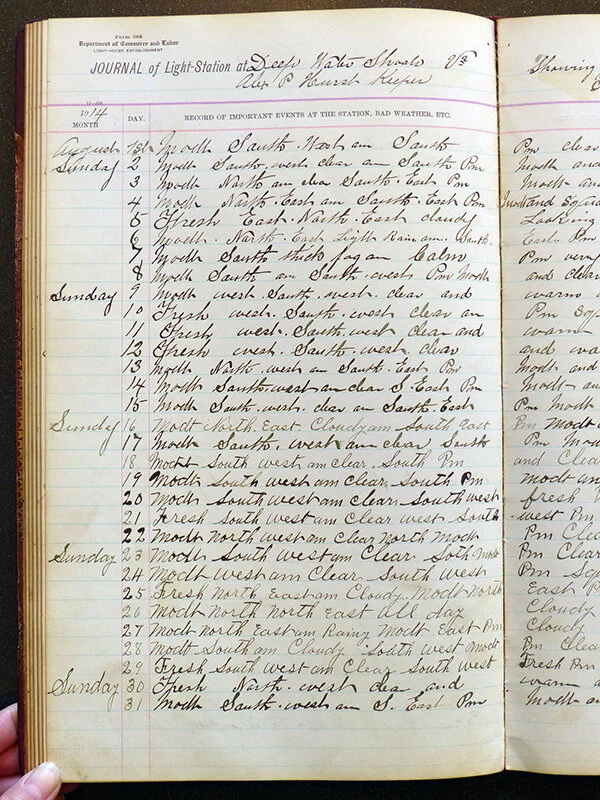 Form 306
Department of Commerce and Labor
LIGHT-HOUSE ESTABLISHMENT
JOURNAL of Light-Station at Deep Water Shoals Va
P Hurst Keeper
1914
MONTH DAY. RECORD OF IMPORTANT EVENTS AT THE STATION, BAD WEATHER, ETC.
August Modt South. West am South
Sunday 2 Modt South. west clear am South Pm
3 Modt North am clear South. East Pm
4 Modt North. East am South. East Pm
5 Fresh East. North. East cloudy
6 Modt. North. East Light Rain am. South.
7 Modt South thick fog am Calm
8 Modt South am South. west Pm Modt
Sunday 9 Modt west. South. west. clear and
10 Fresh west. South. west clear am
11 Fresh west. South. west clear and
12 Fresh west. South. west. clear
13 Modt North. west am South. East Pm
14 Modt South. west am clear S. East Pm
15 Modt South. west. clear am South. East
Sunday 16 Modt North. East. Cloudy am South East
17 Modt South. west am clear South
18 Modt South west am Clear. South Pm
19 Modt South west am Clear. South Pm
20 Modt South west am Clear. South west
21 Fresh South west am Clear west South
22 Modt north west am Clear north Modt
Sunday 23 Modt South west am Clear Soth Modt
24 Modt west am Clear. South west
25 Fresh north East am Cloudy. Modt north
26 Modt north north East all day
27 Modt north East am Rainy Modt East Pm
28 Modt South am Cloudy South west modt
29 Fresh South west am Clear South west
Sunday 30 Fresh North. west clear and
31 Modt South. west am S. East Pm
Showing
Pm clear
Modt and
Modt an
Modt and
Looking
East Pm
Pm very
and clear
warm
Pm
warm
and
Modt and
Modt an
Pm Modt
Pm Modt
Pm
and Clea
modt an
fresh
west Pm
Pm Clea
Pm Clear
Pm
East P
Cloudy
Cloudy
Pm Clear
Fresh Pm
warm a
Modt a